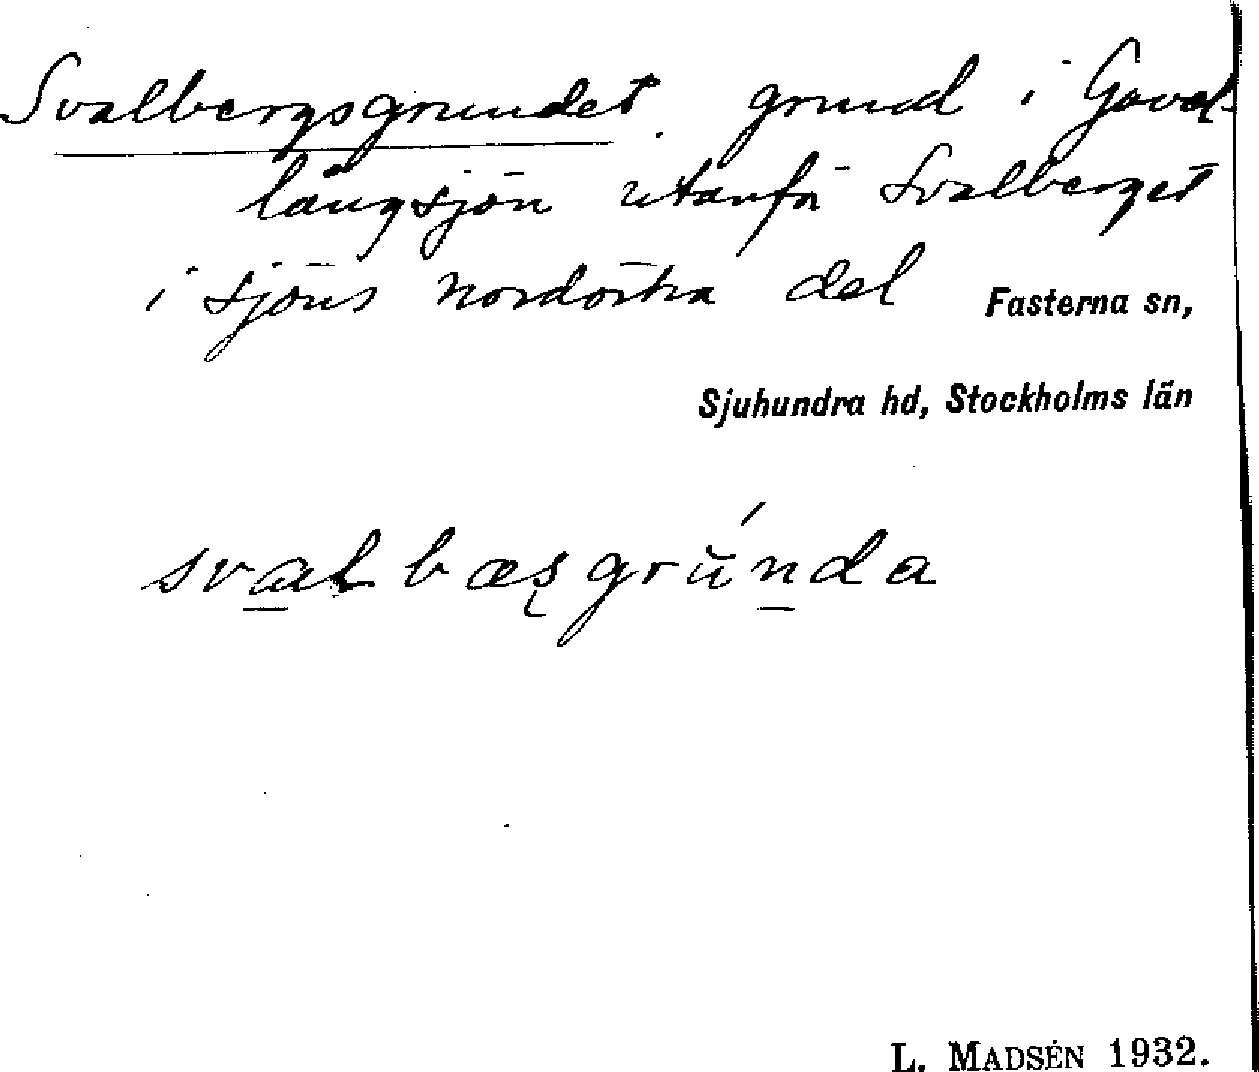 Svalbergsgrundet. grund i Gavel-
långsjön utanför Svalberget
i sjöns nordöstra del Fasterna sn,
Sjuhundra hd, Stockholms län
svalbæsgrúnda
L. MADSÉN 1932.